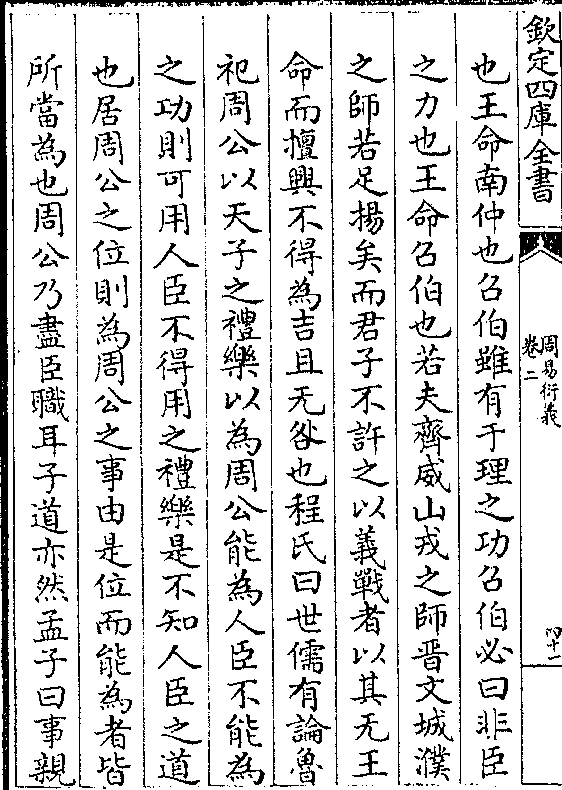 欽定四庫全書
周易衍義
卷二
四十一
也王命南仲也召伯雖有于理之功召伯必曰非臣
之力也王命召伯也若夫齊威山戎之師晋文城濮
之師若足揚矣而君子不許之以義戰者以其无王
命而擅興不得為吉且无咎也程氏曰世儒有論魯
祀周公以天子之禮樂以為周公能為人臣不能為
之功則可用人臣不得用之禮樂是不知人臣之道
也居周公之位則為周公之事由是位而能為者皆
所當為也周公乃盡臣職耳子道亦然孟子曰事親